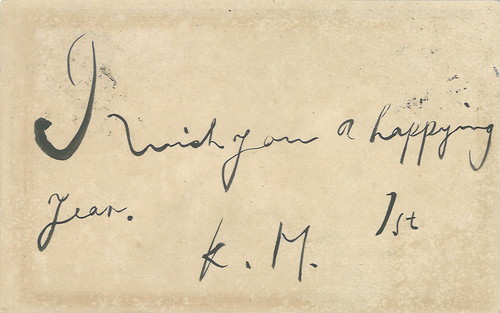 I wish you a happying
year.
K. M. 1st